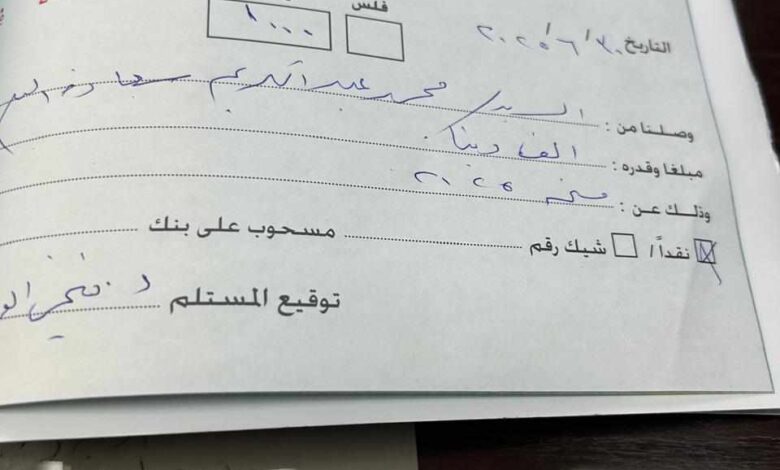 فلس
١٠٠٠
التاريخ ٢٠٢٥/٦/٣٠
وصلنا من : السيد محمد عبد الكريم
مبلغا وقدره : الف دينار
وذلك عن : ٢٠٢٥
نقداً / شيك رقم مسحوب على بنك
توقيع المستلم د.